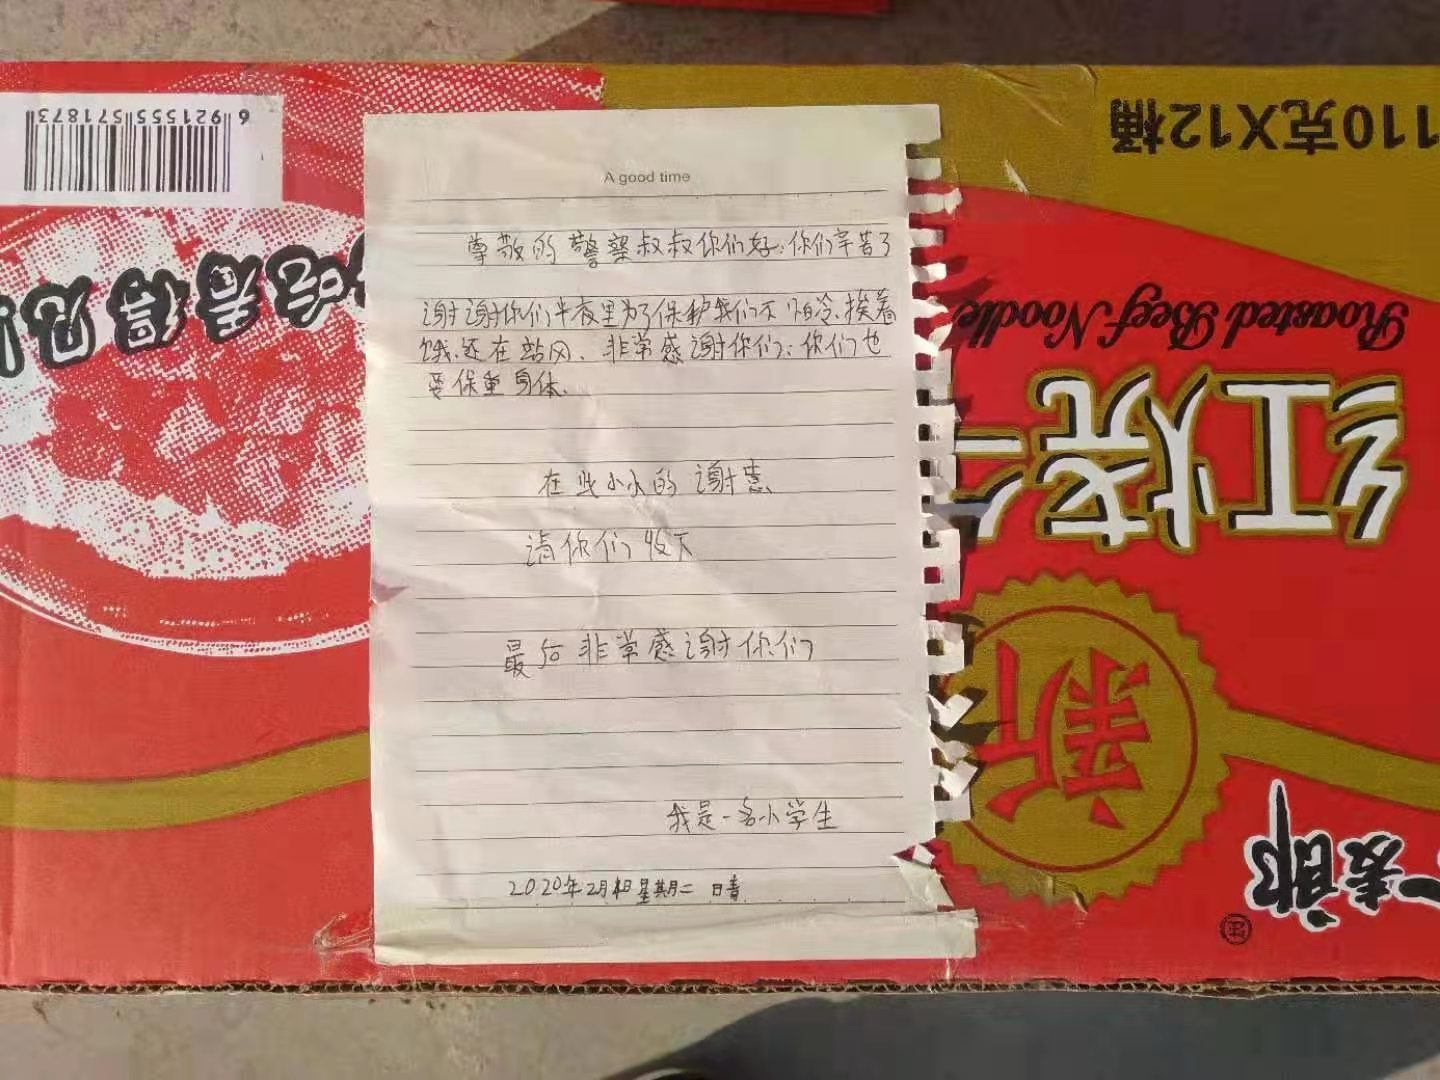 A good time
尊敬的警察叔叔你们好:你们辛苦了
谢谢你们半夜里为了保护我们不怕冷.挨着
饿.还在站冈、非常感谢你们:你们也
要保重身体.
在些小小的谢意
请你们收下
最后非常感谢你们
我是一名小学生
2020年2月4日星期二 晴
6 921555 571873
吃着得见!
110克X12桶
Roasted Beef Noodle
红烧
新
麦郎